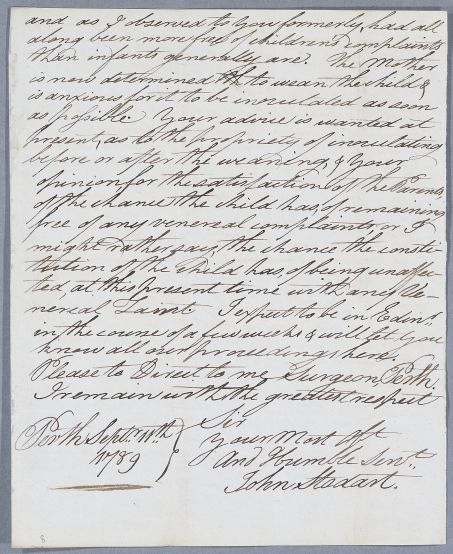 and as I observed to you formerly, had all
along been more free of children's complaints
than infants generally are. The Mother
is now determined to wean the child &
is anxious for it to be inoculated as soon
as possible. Your advice is wanted at
present, as to the propriety of inoculating
before or after the weaning, & Your
opinion for the satisfaction of the Parents,
of the chance the child has, of remaining
free of any venereal complaint, or I
might rather say, the chance the consti-
tution of the Child has, of being unaffec-
ted, at this present time with any Ve-
nereal Taint. I expect to be in Edinr.
in the course of a few weeks & will let you
know all our proceedings here.
Please to Direct to me, Surgeon, Perth.
I remain with the greatest respect
Sir
Your Most Obt
And Humble Servt.
John Stodart.
Perth Septr. 11th
1789
8